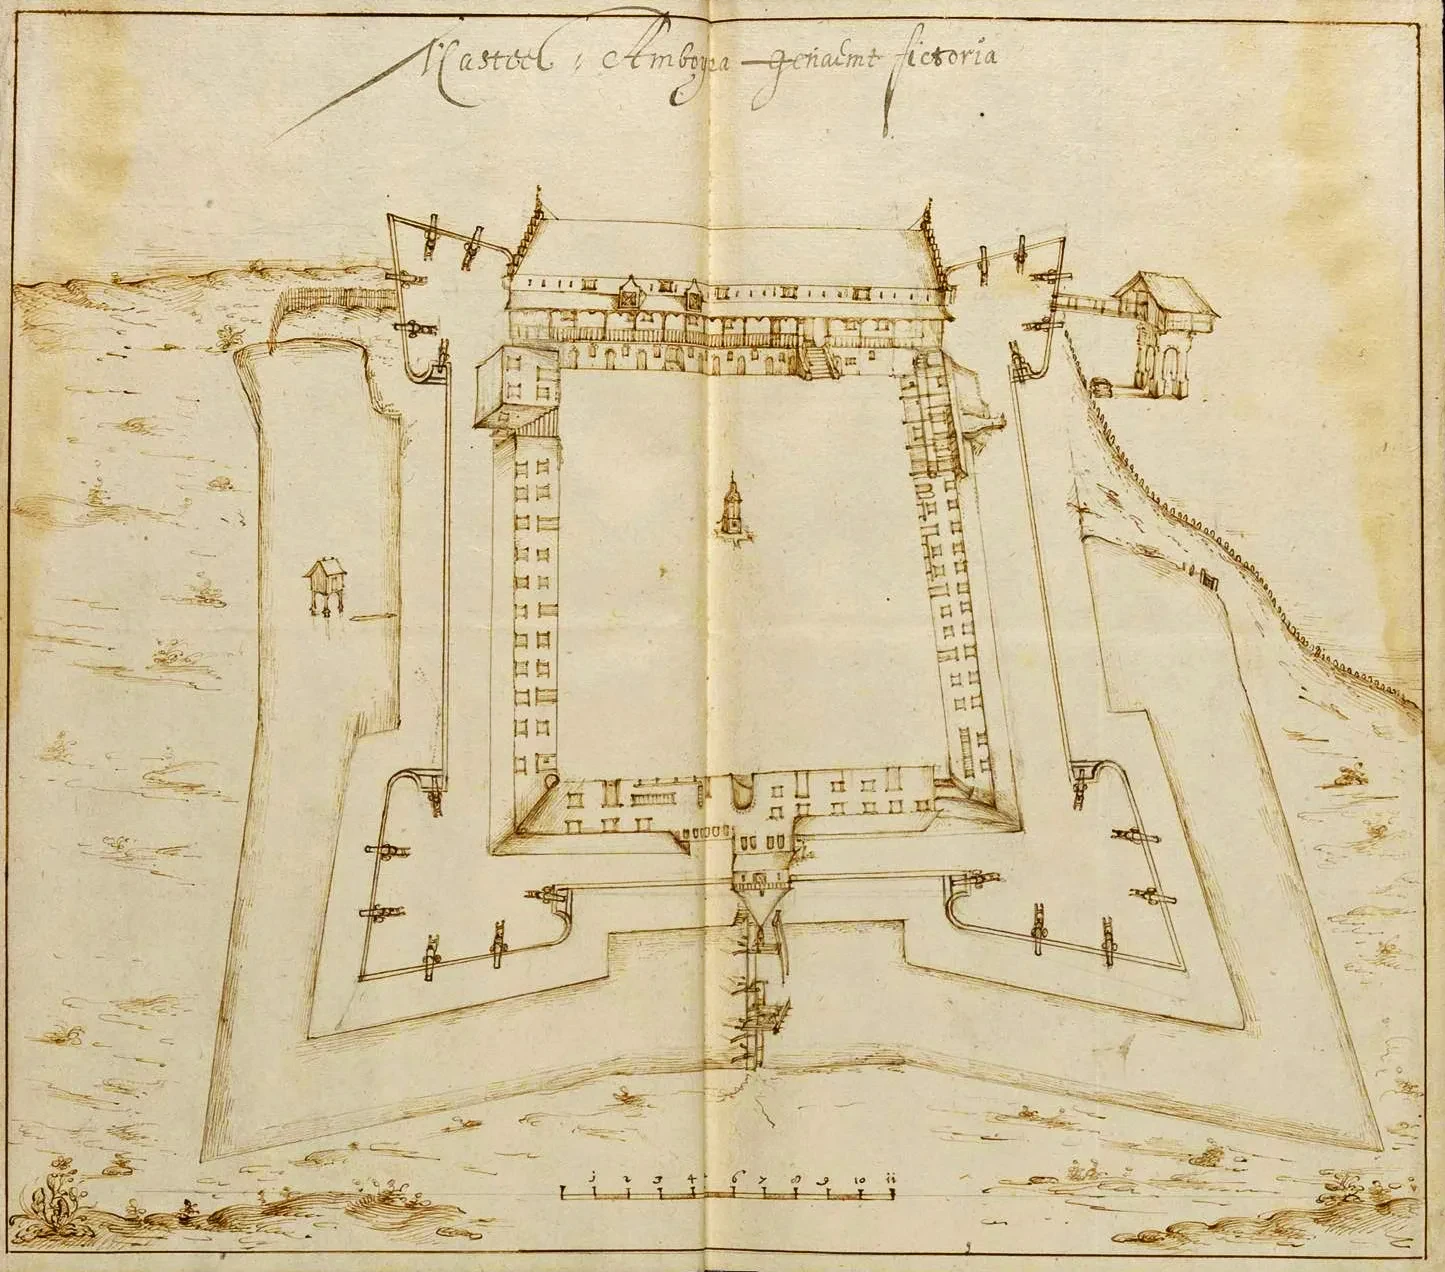 't Casteel : Amboyna genaemt fictoria
1 2 3 4 6 7 8 9 10 11